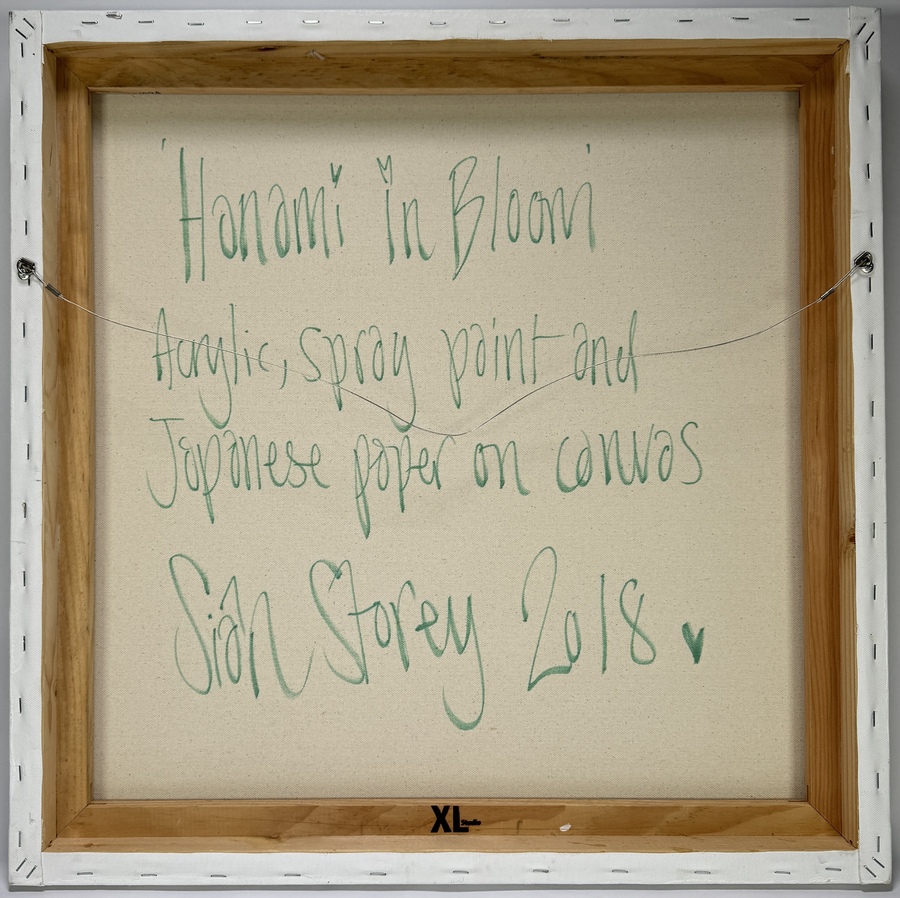 'Hanami in Bloom'
Acrylic, spray paint and
Japanese paper on canvas
Siân Storey 2018 ♥
XL